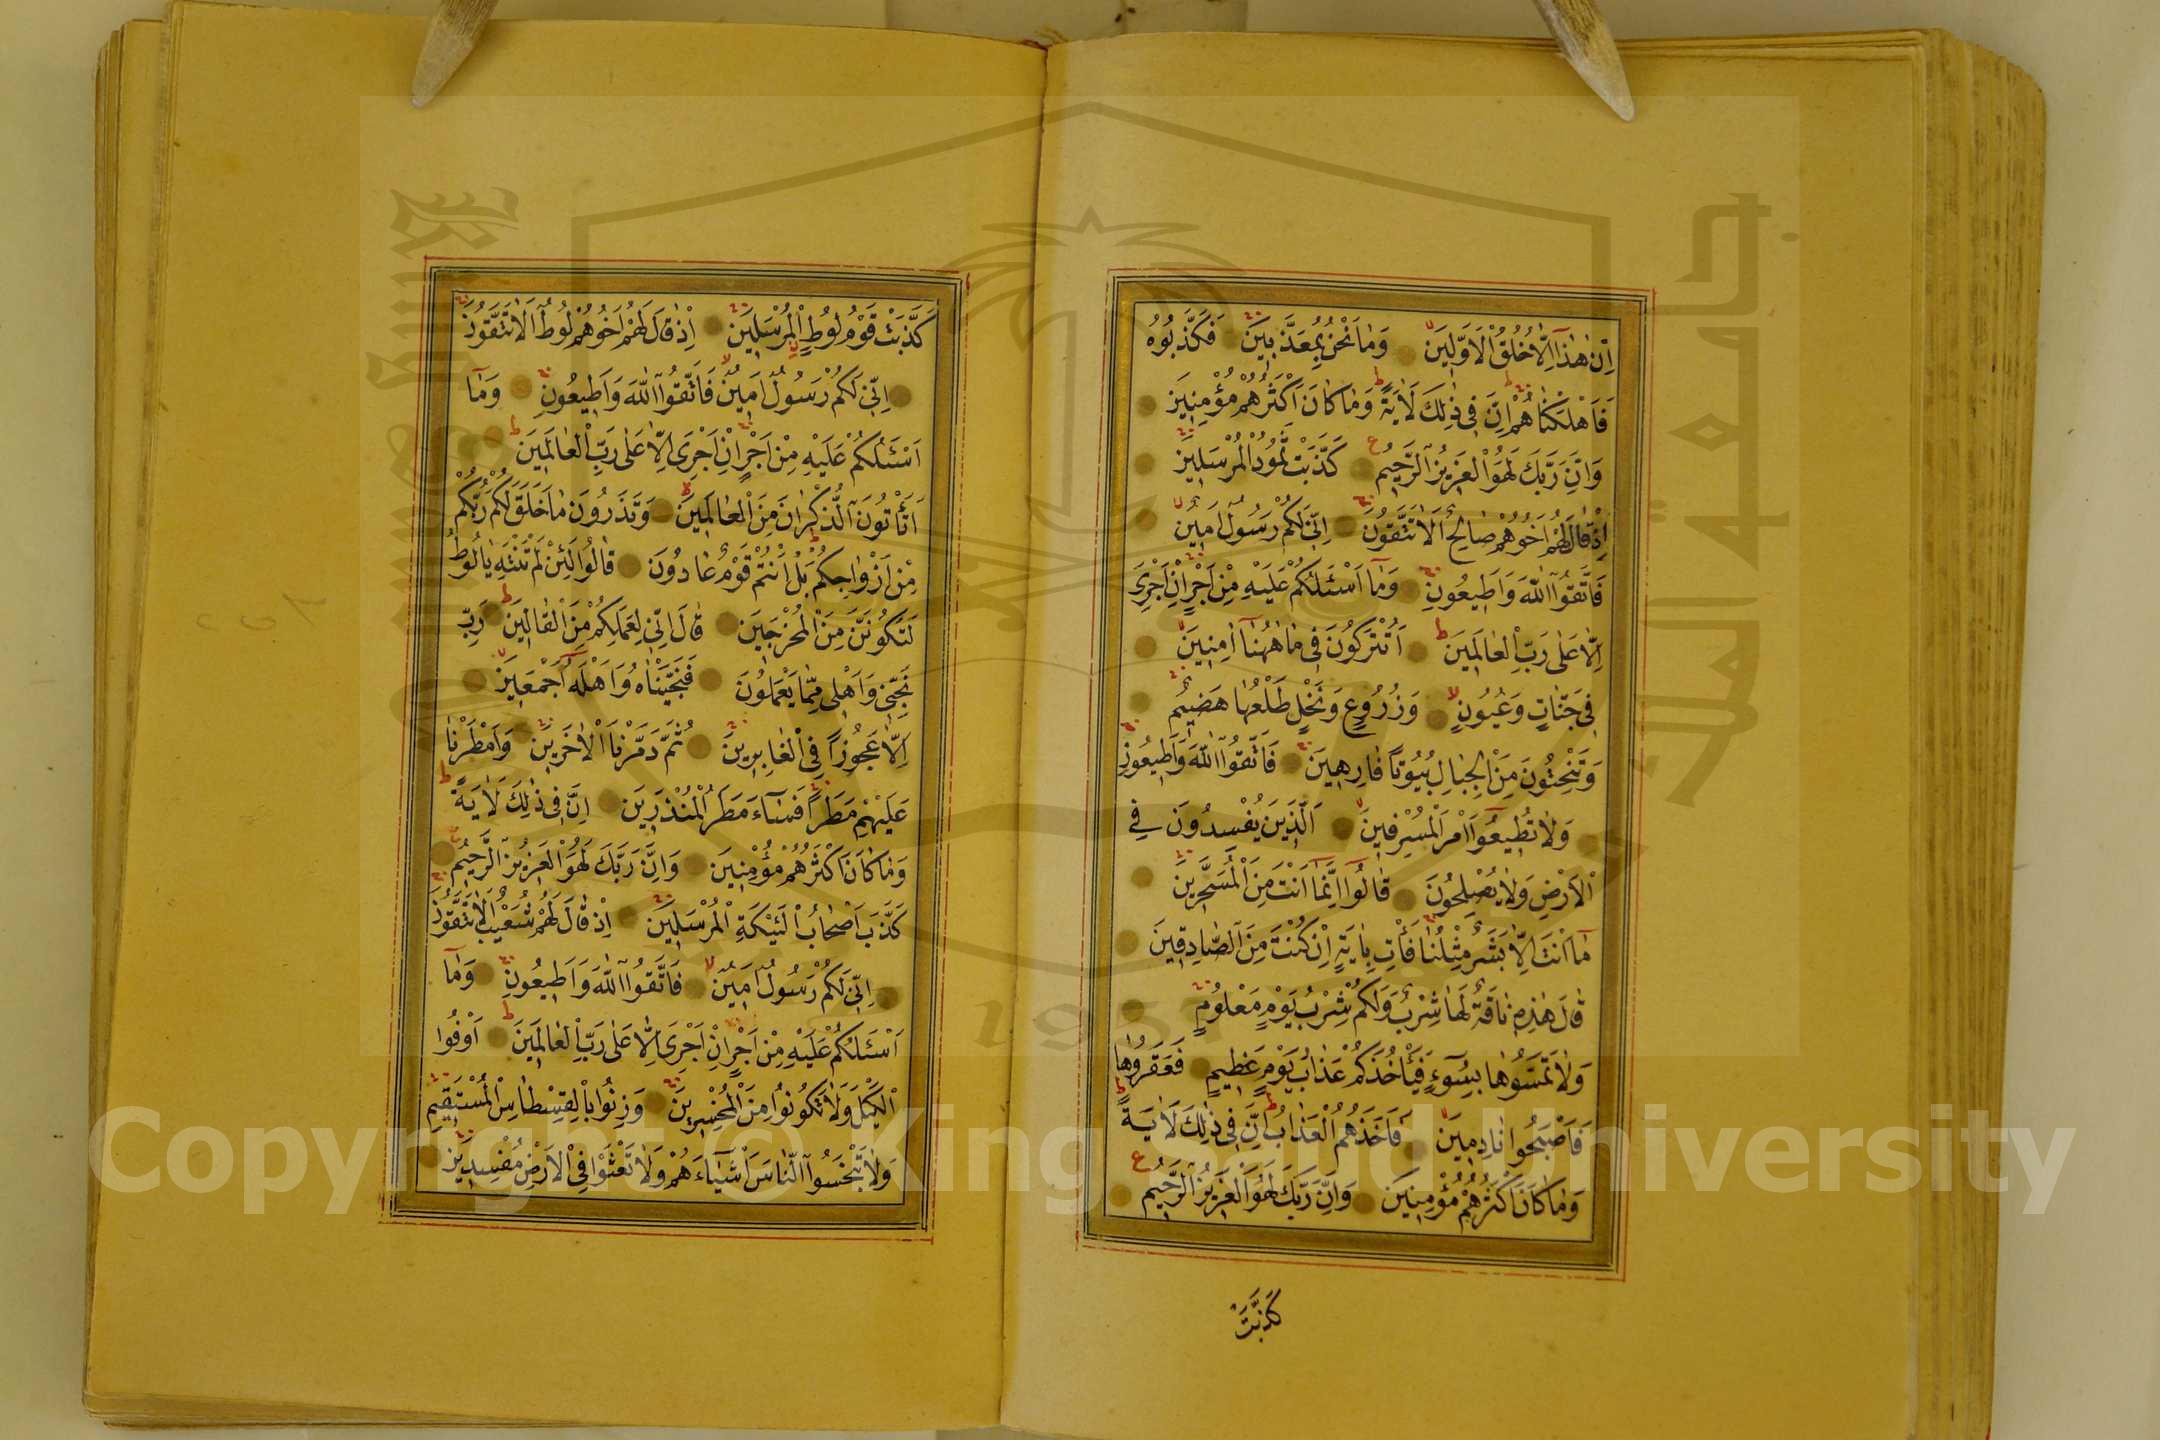 اِنْ هٰذَا اِلَّا خُلُقُ الْاَوَّلِينَ وَمَا نَحْنُ بِمُعَذَّبِينَ فَكَذَّبُوهُ
فَاَهْلَكْنَاهُمْ اِنَّ فِي ذٰلِكَ لَاٰيَةً وَمَا كَانَ اَكْثَرُهُمْ مُؤْمِنِينَ
وَاِنَّ رَبَّكَ لَهُوَ الْعَزِيزُ الرَّحِيمُ كَذَّبَتْ ثَمُودُ الْمُرْسَلِينَ
اِذْ قَالَ لَهُمْ اَخُوهُمْ صَالِحٌ اَلَا تَتَّقُونَ اِنِّي لَكُمْ رَسُولٌ اَمِينٌ
فَاتَّقُوا اللّٰهَ وَاَطِيعُونِ وَمَا اَسْئَلُكُمْ عَلَيْهِ مِنْ اَجْرٍ اِنْ اَجْرِيَ
اِلَّا عَلٰى رَبِّ الْعَالَمِينَ اَتُتْرَكُونَ فِي مَا هٰهُنَا اٰمِنِينَ
فِي جَنَّاتٍ وَعُيُونٍ وَزُرُوعٍ وَنَخْلٍ طَلْعُهَا هَضِيمٌ
وَتَنْحِتُونَ مِنَ الْجِبَالِ بُيُوتًا فَارِهِينَ فَاتَّقُوا اللّٰهَ وَاَطِيعُونِ
وَلَا تُطِيعُوا اَمْرَ الْمُسْرِفِينَ اَلَّذِينَ يُفْسِدُونَ فِي
الْاَرْضِ وَلَا يُصْلِحُونَ قَالُوا اِنَّمَا اَنْتَ مِنَ الْمُسَحَّرِينَ
مَا اَنْتَ اِلَّا بَشَرٌ مِثْلُنَا فَأْتِ بِاٰيَةٍ اِنْ كُنْتَ مِنَ الصَّادِقِينَ
قَالَ هٰذِهِ نَاقَةٌ لَهَا شِرْبٌ وَلَكُمْ شِرْبُ يَوْمٍ مَعْلُومٍ
وَلَا تَمَسُّوهَا بِسُوءٍ فَيَأْخُذَكُمْ عَذَابُ يَوْمٍ عَظِيمٍ فَعَقَرُوهَا
فَاَصْبَحُوا نَادِمِينَ فَاَخَذَهُمُ الْعَذَابُ اِنَّ فِي ذٰلِكَ لَاٰيَةً
وَمَا كَانَ اَكْثَرُهُمْ مُؤْمِنِينَ وَاِنَّ رَبَّكَ لَهُوَ الْعَزِيزُ الرَّحِيمُ
كَذَّبَتْ
كَذَّبَتْ قَوْمُ لُوطٍ الْمُرْسَلِينَ اِذْ قَالَ لَهُمْ اَخُوهُمْ لُوطٌ اَلَا تَتَّقُونَ
اِنِّي لَكُمْ رَسُولٌ اَمِينٌ فَاتَّقُوا اللّٰهَ وَاَطِيعُونِ وَمَا
اَسْئَلُكُمْ عَلَيْهِ مِنْ اَجْرٍ اِنْ اَجْرِيَ اِلَّا عَلٰى رَبِّ الْعَالَمِينَ
اَتَأْتُونَ الذُّكْرَانَ مِنَ الْعَالَمِينَ وَتَذَرُونَ مَا خَلَقَ لَكُمْ رَبُّكُمْ
مِنْ اَزْوَاجِكُمْ بَلْ اَنْتُمْ قَوْمٌ عَادُونَ قَالُوا لَئِنْ لَمْ تَنْتَهِ يَا لُوطُ
لَتَكُونَنَّ مِنَ الْمُخْرَجِينَ قَالَ اِنِّي لِعَمَلِكُمْ مِنَ الْقَالِينَ رَبِّ
نَجِّنِي وَاَهْلِي مِمَّا يَعْمَلُونَ فَنَجَّيْنَاهُ وَاَهْلَهُ اَجْمَعِينَ
اِلَّا عَجُوزًا فِي الْغَابِرِينَ ثُمَّ دَمَّرْنَا الْاٰخَرِينَ وَاَمْطَرْنَا
عَلَيْهِمْ مَطَرًا فَسَاءَ مَطَرُ الْمُنْذَرِينَ اِنَّ فِي ذٰلِكَ لَاٰيَةً
وَمَا كَانَ اَكْثَرُهُمْ مُؤْمِنِينَ وَاِنَّ رَبَّكَ لَهُوَ الْعَزِيزُ الرَّحِيمُ
كَذَّبَ اَصْحَابُ لْئَيْكَةِ الْمُرْسَلِينَ اِذْ قَالَ لَهُمْ شُعَيْبٌ اَلَا تَتَّقُونَ
اِنِّي لَكُمْ رَسُولٌ اَمِينٌ فَاتَّقُوا اللّٰهَ وَاَطِيعُونِ وَمَا
اَسْئَلُكُمْ عَلَيْهِ مِنْ اَجْرٍ اِنْ اَجْرِيَ اِلَّا عَلٰى رَبِّ الْعَالَمِينَ اَوْفُوا
الْكَيْلَ وَلَا تَكُونُوا مِنَ الْمُخْسِرِينَ وَزِنُوا بِالْقِسْطَاسِ الْمُسْتَقِيمِ
وَلَا تَبْخَسُوا النَّاسَ اَشْيَاءَهُمْ وَلَا تَعْثَوْا فِي الْاَرْضِ مُفْسِدِينَ
Copyright © King Saud University
1957